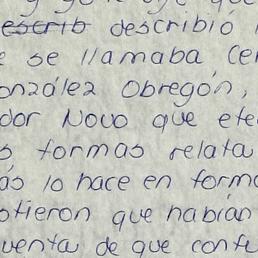 y yo le dije que
escrib describió
e se llamaba, cer
onzález Obregón,
dor Novo que ete
s formas relata
ás lo hace en forma
otieron que habían
uenta de que confu